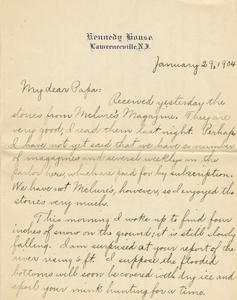 Kennedy House,
Lawrenceville, N.J.
January 29, 1904
My dear Papa:
Received yesterday the
stories from McLure's Magazine. They are
very good; I read them last night. Perhaps
I have not yet said that we have a number
of magazines and several weeklys on the
parlor here, which are paid for by subscription.
We have not McLure's, however, so I enjoyed the
stories very much.
This morning I woke up to find four
inches of snow on the ground; it is still slowly
falling. I am surprised at your report of the
river rising 6 ft. I suppose the flooded
bottoms will soon be covered with dry ice and
spoil your mink hunting for a time.